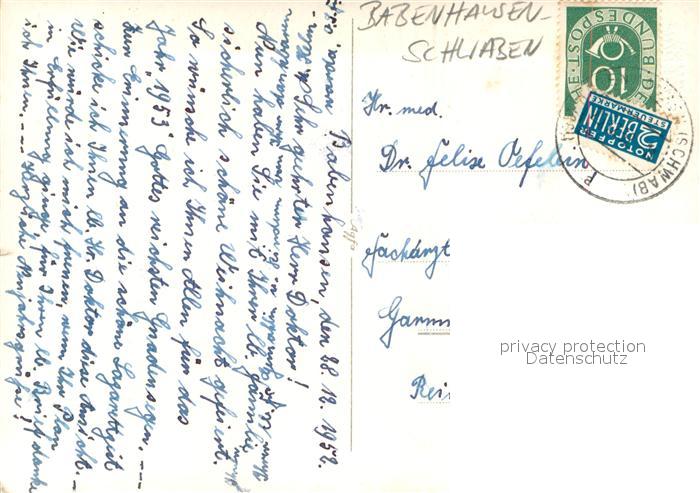 BABENHAUSEN-
SCHWABEN
DEUTSCHE BUNDESPOST
10
NOTOPFER
2 BERLIN
STEUERMARKE
(SCHWAB)
Hr. med.
Dr. Felix Oefelein
Fachärzt
Garm
Rei
privacy protection
Datenschutz
Babenhausen, den 28.12.1952.
Sehr geehrter Herr Doktor!
Nun haben Sie mit Ihrer lb. Familie
sicherlich schöne Weihnacht gefeiert.
So wünsche ich Ihnen Allen für das
Jahr 1953 Gottes reichsten Gnadensegen. ---
Zur Erinnerung an die schöne Lazarettzeit
schicke ich Ihnen lb. Hr. Doktor diese Ansicht. -
Wie würde ich mich freuen, wenn Ihr Plan
in Erfüllung ginge! Für Ihren lb. Brief danke
ich Ihnen. --- Herzliche Neujahrsgrüße!